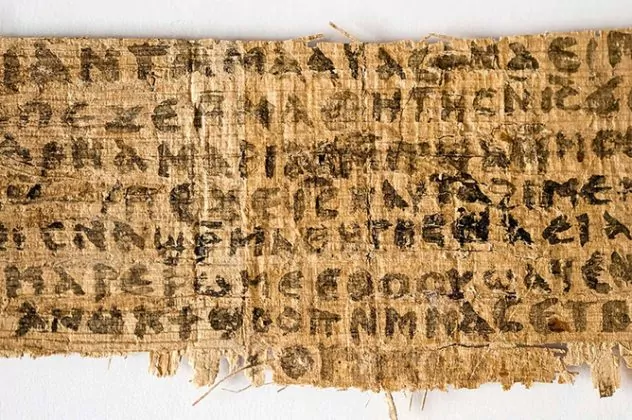 ⲁⲛ ⲧⲁⲙⲁⲁⲩ ⲁⲥϯ ⲛⲁⲉⲓ ⲡ
ⲡⲉϫⲉ ⲙⲙⲁⲑⲏⲧⲏⲥ ⲛⲓⲥ ϫⲉ
ⲁⲣⲛⲁ ⲙⲁⲣⲓⲁⲙ ⲙⲡϣⲁ ⲙⲙⲟ
ⲡⲉϫⲉ ⲓⲥ ⲛⲁⲩ ⲧⲁϩⲓⲙⲉ
ⲥⲛⲁϣⲣⲙⲁⲑⲏⲧⲏⲥ ⲛⲁⲉⲓ ⲁ
ⲙⲁⲣⲉⲣⲱⲙⲉ ⲉⲑⲟⲟⲩ ϣⲁϥⲉ ⲛ
ⲁⲛⲟⲕ ϯϣⲟⲟⲡ ⲛⲙⲙⲁⲥ ⲉⲧⲃ